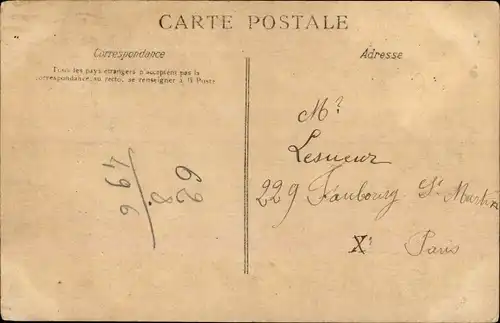 CARTE POSTALE
Correspondance
Tous les pays étrangers n'acceptent pas la
correspondance au recto, se renseigner à la Poste
Adresse
Mr
Lesueur
229 Faubourg St Martin
Xe
Paris
628
496